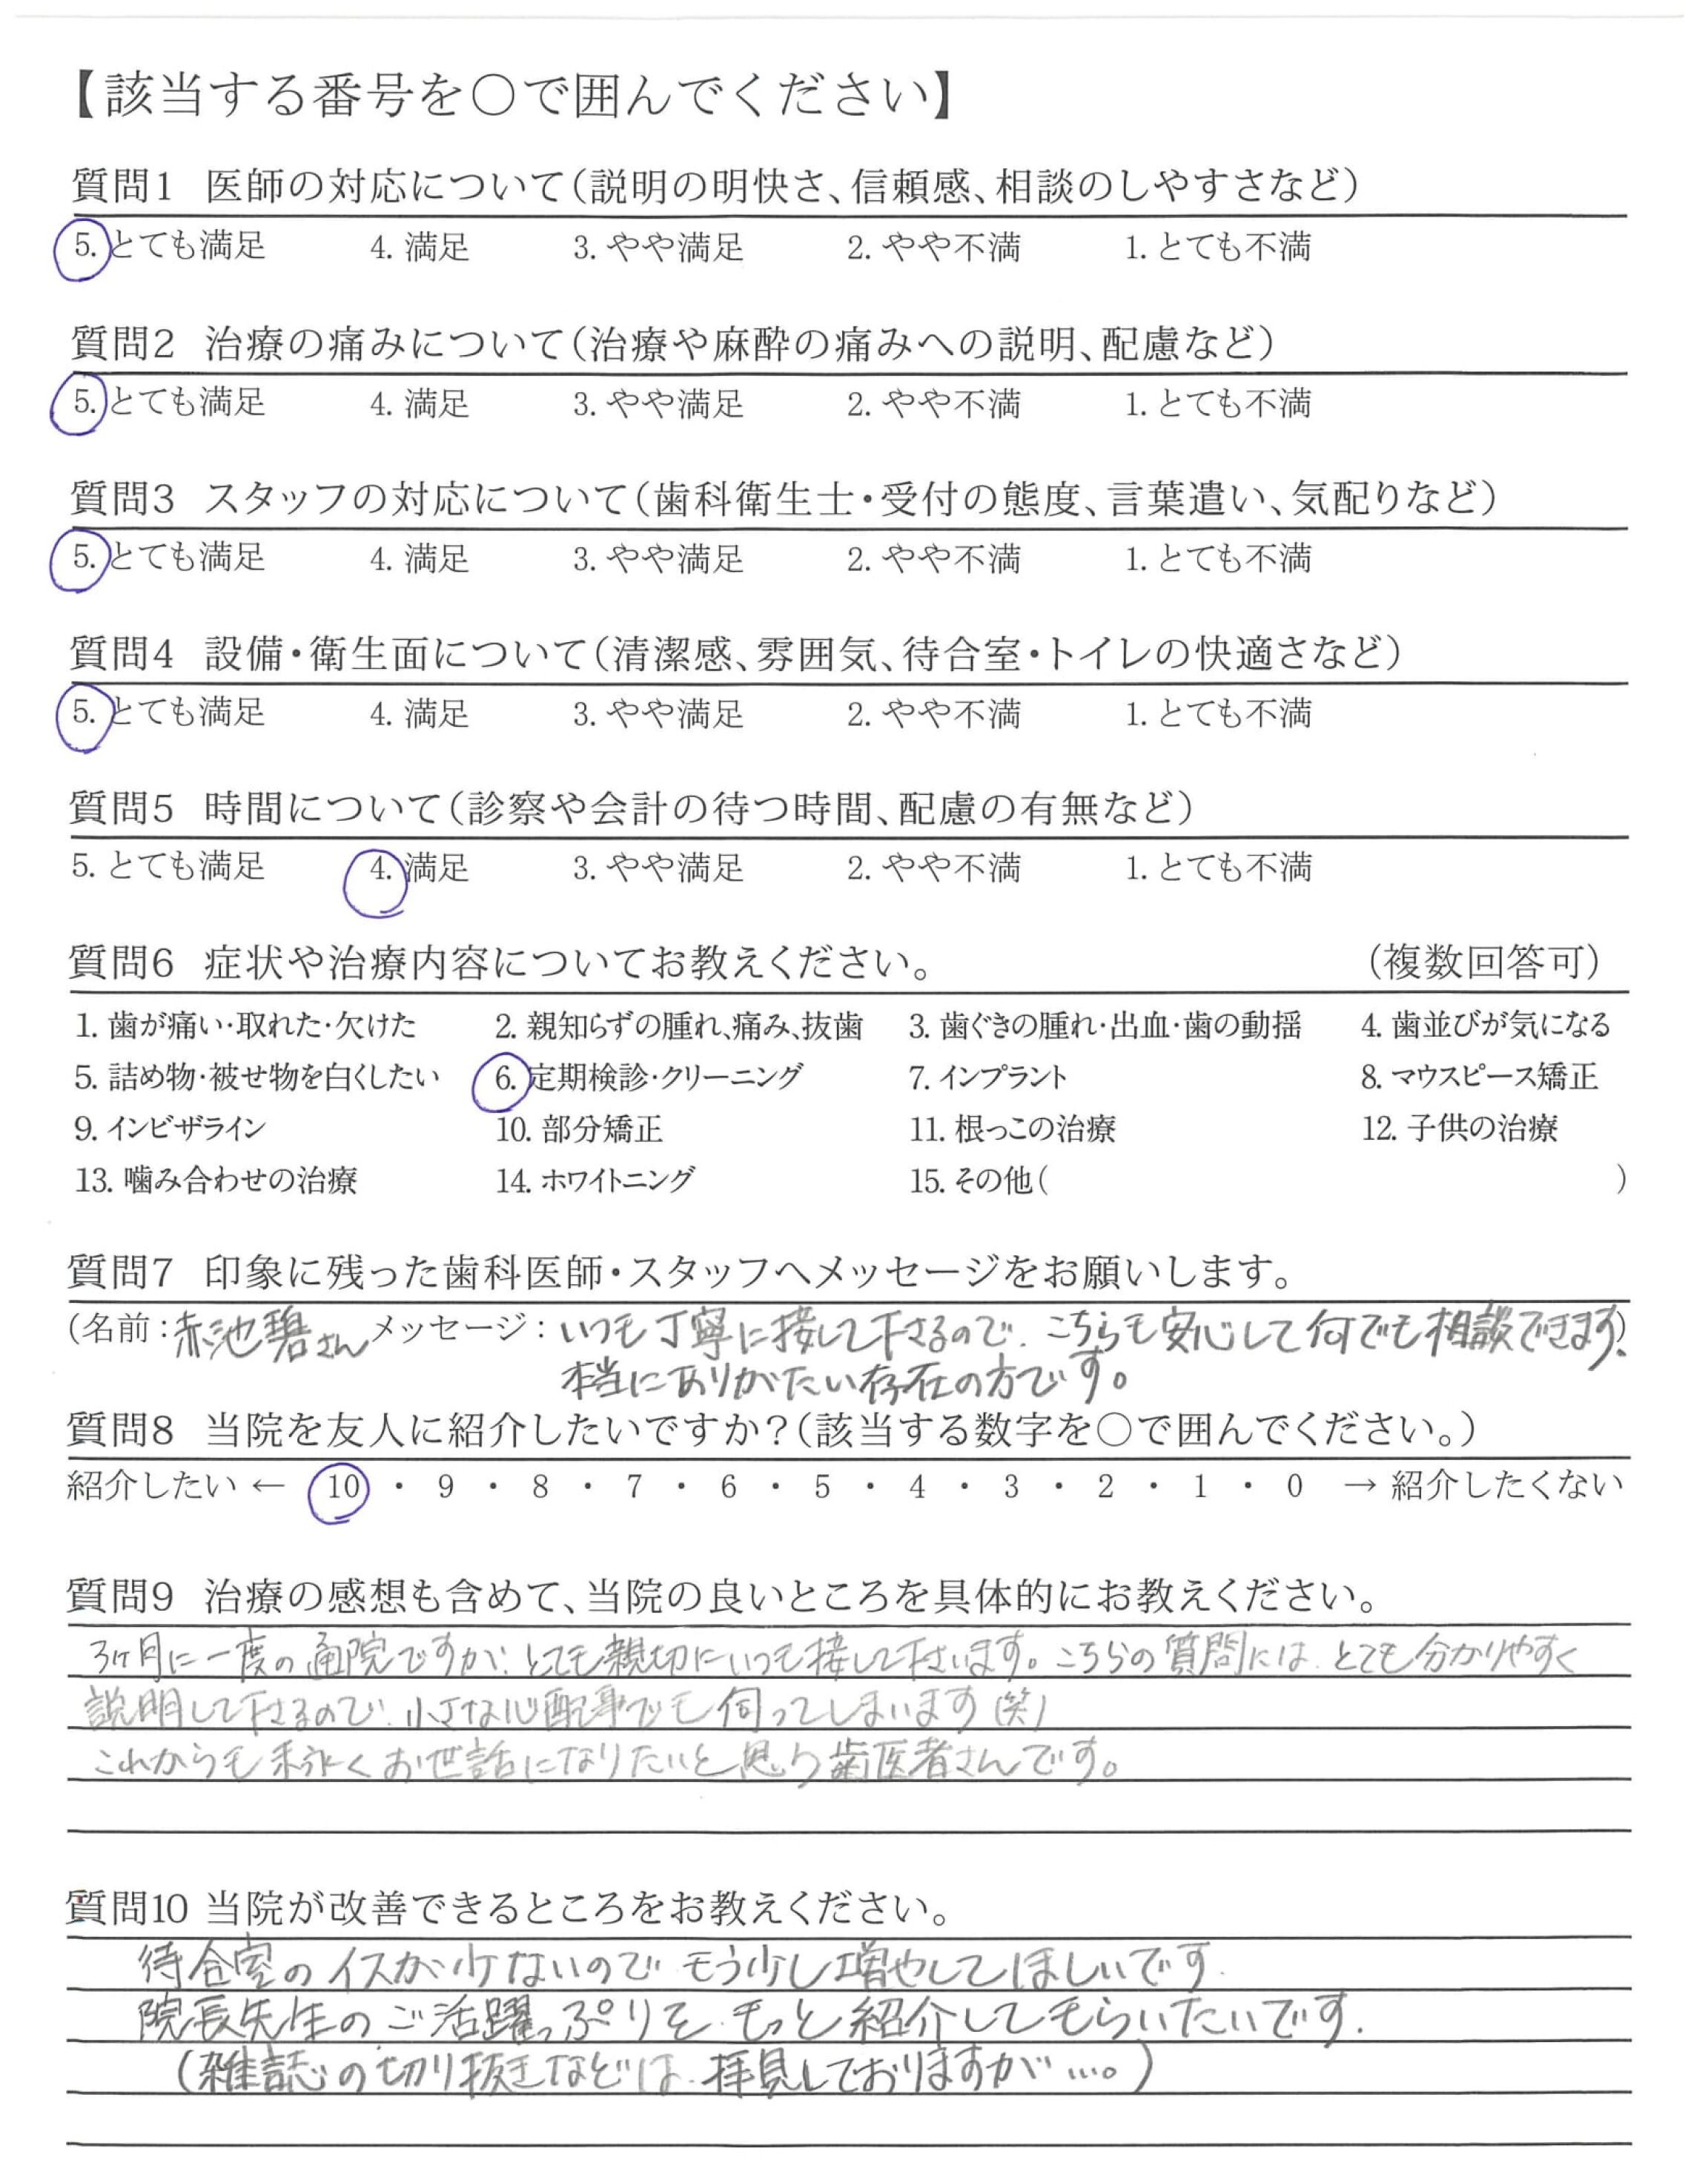 【該当する番号を○で囲んでください】
質問1 医師の対応について(説明の明快さ、信頼感、相談のしやすさなど)
5. とても満足 4. 満足 3. やや満足 2. やや不満 1. とても不満
質問2 治療の痛みについて(治療や麻酔の痛みへの説明、配慮など)
5. とても満足 4. 満足 3. やや満足 2. やや不満 1. とても不満
質問3 スタッフの対応について(歯科衛生士・受付の態度、言葉遣い、気配りなど)
5. とても満足 4. 満足 3. やや満足 2. やや不満 1. とても不満
質問4 設備・衛生面について(清潔感、雰囲気、待合室・トイレの快適さなど)
5. とても満足 4. 満足 3. やや満足 2. やや不満 1. とても不満
質問5 時間について(診察や会計の待つ時間、配慮の有無など)
5. とても満足 4. 満足 3. やや満足 2. やや不満 1. とても不満
質問6 症状や治療内容についてお教えください。 (複数回答可)
1. 歯が痛い・取れた・欠けた 2. 親知らずの腫れ、痛み、抜歯 3. 歯ぐきの腫れ・出血・歯の動揺 4. 歯並びが気になる
5. 詰め物・被せ物を白くしたい 6. 定期検診・クリーニング 7. インプラント 8. マウスピース矯正
9. インビザライン 10. 部分矯正 11. 根っこの治療 12. 子供の治療
13. 噛み合わせの治療 14. ホワイトニング 15. その他( )
質問7 印象に残った歯科医師・スタッフへメッセージをお願いします。
(名前:赤池碧さん メッセージ:いつも丁寧に接して下さるので、こちらも安心して何でも相談できます。)
本当にありがたい存在の方です。
質問8 当院を友人に紹介したいですか?(該当する数字を○で囲んでください。)
紹介したい ← 10 ・ 9 ・ 8 ・ 7 ・ 6 ・ 5 ・ 4 ・ 3 ・ 2 ・ 1 ・ 0 → 紹介したくない
質問9 治療の感想も含めて、当院の良いところを具体的にお教えください。
3ヶ月に一度の通院ですが、とても親切にいつも接して下さいます。こちらの質問には、とても分かりやすく
説明して下さるので、小さな心配事でも伺ってしまいます(笑)
これからも末永くお世話になりたいと思う歯医者さんです。
質問10 当院が改善できるところをお教えください。
待合室のイスが少ないので もう少し増やしてほしいです.
院長先生のご活躍っぷりを、もっと紹介してもらいたいです.
(雑誌の切り抜きなどは、拝見しておりますが…。)